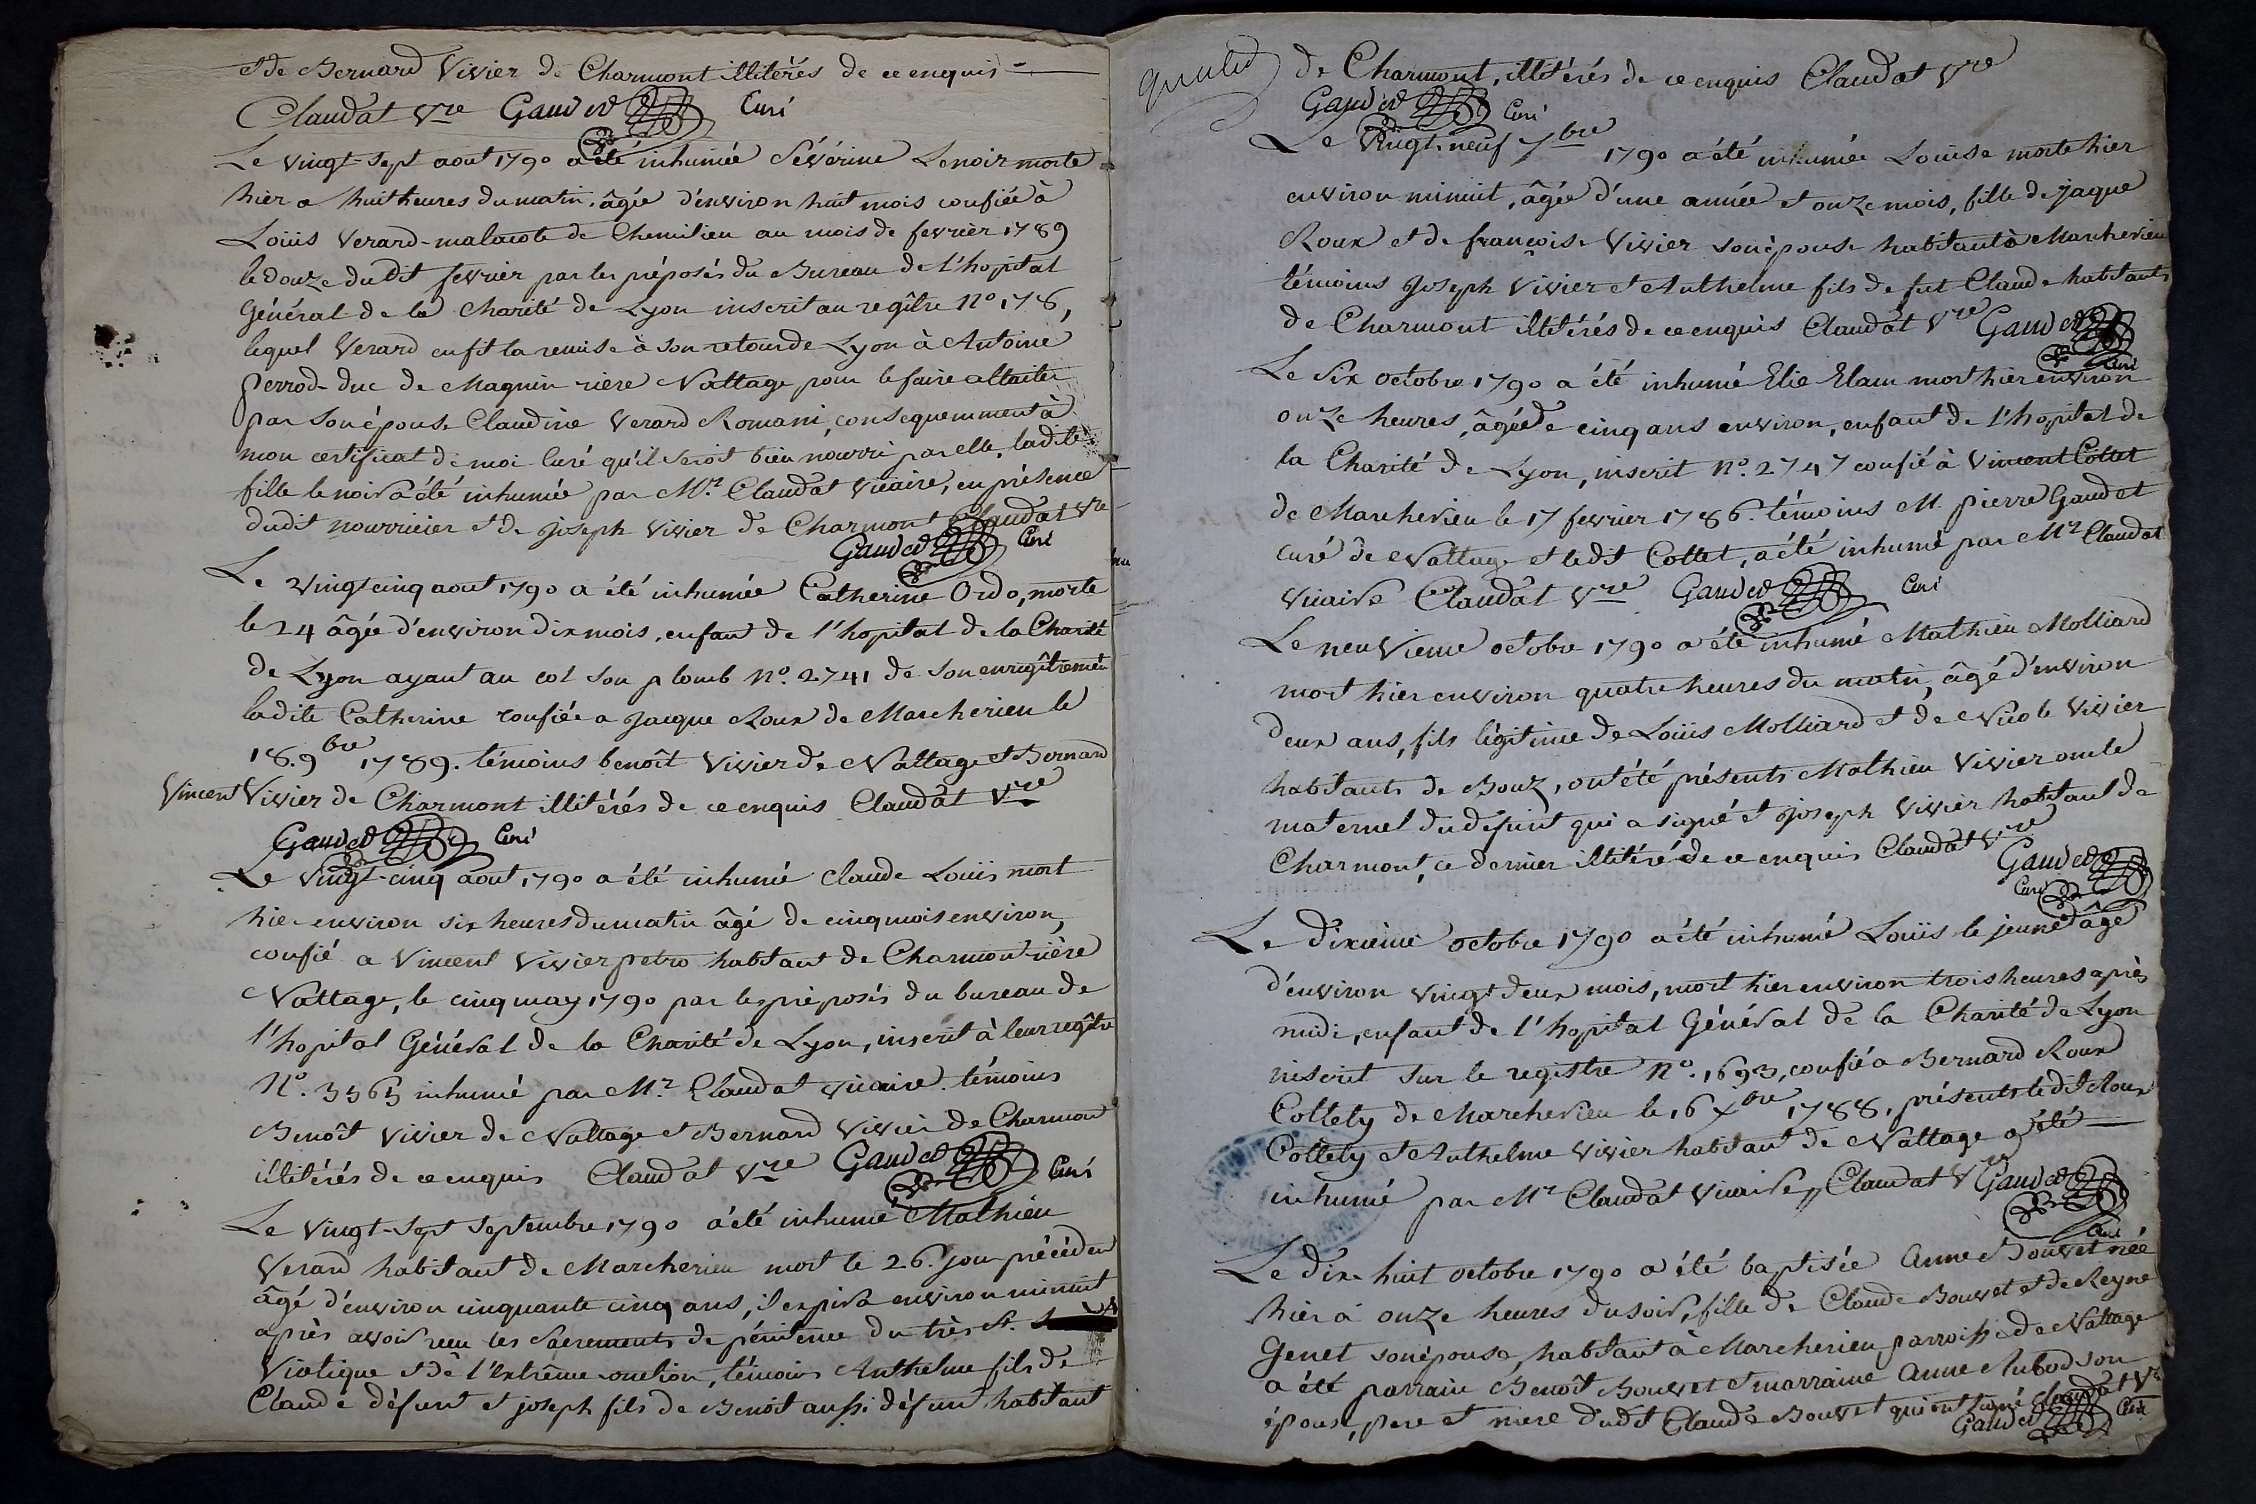 et de Bernard Vivier de Charmont illitérés de ce enquis
Claudat Vre Gaudet Curé
Le vingt-sept aout 1790 a été inhumée Sévérine Lenoir morte
hier a huit heures du matin, âgée d'environ huit mois confiée à
Loüis Verard-malacote de Chemilieu au mois de fevrier 1789
le douze dudit fevrier par les préposés du Bureau de l'hopital
Général de la Charité de Lyon inscrit au regître No 178,
lequel Verard en fit la remise à son retour de Lyon à Antoine
perrod-duc de Magnin riere Nattage pour le faire allaiter
par son épouse Claudine Verard Romani, consequemment à
mon certificat de moi Curé qu'il seroit bien nourri par elle, ladite
fille le noir a été inhumée par Mr. Claudat Vicaire, en présence
dudit nourricier et de joseph Vivier de Charmont Claudat Vre
Gaudet Curé
Le vingt cinq aout 1790 a été inhumée Catherine Ordo, morte
le 24 âgée d'environ dix mois, enfant de l'hopital de la Charité
de Lyon ayant au col son plomb No. 2741 de son enregîtrement
ladite Catherine confiée a Jacque Roux de Marcherieu le
18. 9bre 1789. témoins benoît Vivier de Nattage et Bernard
Vincent Vivier de Charmont illitérés de ce enquis Claudat Vre
Gaudet Curé
Le Vingt-cinq aout 1790 a été inhumé Claude Loüis mort
hier environ six heures du matin âgé de cinq mois environ,
confié a Vincent Vivier petro habitant de Charmon rière
Nattage, le cinq may 1790 par les préposés du bureau de
l'hopital Général de la Charité de Lyon, inscrit à leur regître
No. 3365 inhumé par Mr. Claudat Vicaire. témoins
Benoît Vivier de Nattage et Bernard Vivier de Charmon
illitérés de ce enquis Claudat Vre Gaudet Curé
Le Vingt-sept septembre 1790 a été inhumé Mathieu
Verard habitant de Marcherieu mort le 26. jour précéden
âgé d'environ cinquante cinq ans, il expira environ minuit
après avoir reçu les sacrements de pénitence du très St.
Viatique et de l'extrême onction, témoins Anthelme fils de
Claude défunt et joseph fils de Benoît aussi défunt habitant
de Charmont, illitérés de ce enquis Claudat Vre
Gaudet Curé
Le Vingt-neuf 7bre 1790 a été inhumée Loüise morte hier
environ minuit, âgée d'une année et onze mois, fille de jaque
Roux et de françoise Vivier son épouse habitant à Marcherieu
témoins Joseph Vivier et Anthelme fils de fut Claude habitants
de Charmont illitérés de ce enquis Claudat Vre Gaudet
Curé
Le Six octobre 1790 a été inhumé Elie Elam mort hier environ
onze heures, âgé de cinq ans environ, enfant de l'hopital de
la Charité de Lyon, inscrit No. 2747 confié à Vincent Collet
de Marcherieu le 17 fevrier 1786. témoins M. pierre Gaudet
curé de Nattage et ledit Collet, a été inhumé par Mr Claudat
Vicaire Claudat Vre Gaudet Curé
Le neuvieme octobre 1790 a été inhumé Mathieu Molliard
mort hier environ quatre heures du matin, âgé d'environ
deux ans, fils légitime de Loüis Molliard et de Nicole Vivier
habitants de Bouz, ont été présents Mathieu Vivier oncle
maternel du défunt qui a signé et joseph Vivier habitant de
Charmont, ce dernier illitéré de ce enquis Claudat Vre
Gaudet
Curé
Le dixième octobre 1790 a été inhumé Loüis le jeune âgé
d'environ vingt deux mois, mort hier environ trois heures après
midi, enfant de l'hopital Général de la Charité de Lyon
inscrit sur le registre No. 1693, confié a Bernard Roux
Collety de Marcherieu le 16 Xbre 1788, présents ledit Roux
Collety et Anthelme Vivier habitant de Nattage a été
inhumé par Mr Claudat Vicaire, Claudat Vre Gaudet
Curé
Le dix-huit octobre 1790 a été baptisée Anne Bouvet née
hier à onze heures du soir, fille de Claude Bouvet et de Reyne
Genet son épouse, habitant à Marcherieu parroisse de Nattage
a été parrain Benoît Bouvet et marraine Anne Aubod son
épouse, pere et mere dudit Claude Bouvet qui ont signé Claudat Vre
Gaudet Curé